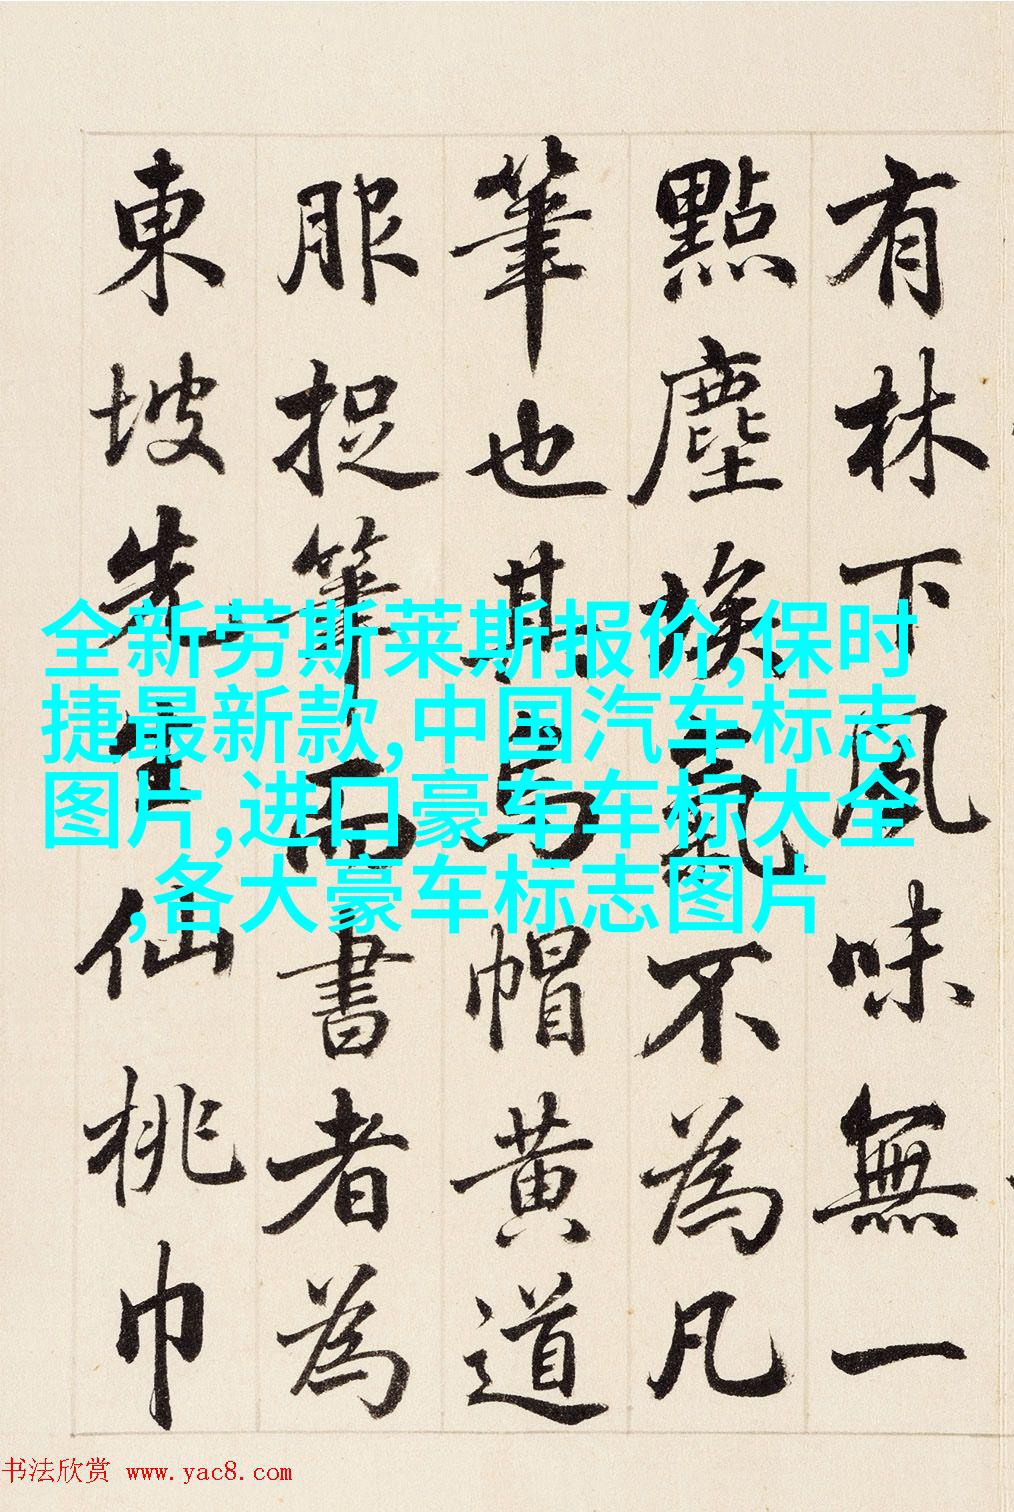 有林下風味無一
點塵埃氣不為凡
筆也其烏帽黃道
服捉筆而書者為
東坡先生仙桃巾
全新劳斯莱斯报价,保时
捷最新款,中国汽车标志
图片,进口豪车车标大全
,各大豪车标志图片
书法欣赏 www.yac8.com